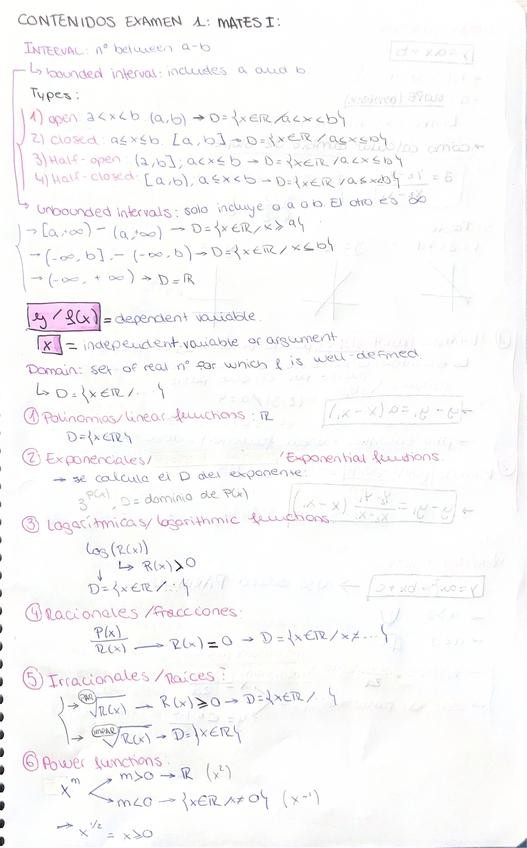 CONTENIDOS EXAMEN 1: MATES I:
INTERVAL: nº between a-b
↳ bounded interval: includes a and b
Types:
1) open a<x<b (a,b) → D={x∈ℝ/a<x<b}
2) closed: a≤x≤b. [a,b] → D={x∈ℝ/a≤x≤b}
3) Half-open: (a,b]; a<x≤b → D={x∈ℝ/a<x≤b}
4) Half-closed: [a,b), a≤x<b → D={x∈ℝ/a≤x<b}
→ unbounded intervals: solo incluye a o a b. El otro es ∞
→ [a,+∞) - (a,+∞) → D={x∈ℝ/x≥a}
→ (-∞, b] - (-∞, b) → D={x∈ℝ/x≤b}
→ (-∞, +∞) → D=ℝ
y / f(x) = dependent variable.
x = independent variable or argument
Domain: set of real nº for which f is well-defined.
↳ D={x∈ℝ/...}
① Polinomias/linear functions: ℝ
D={x∈ℝ}
② Exponenciales/ 'Exponential functions.
→ se calcula el D del exponente:
3^P(x), D = dominio de P(x)
③ Logarítmicas/logarithmic functions
log(R(x))
↳ R(x)>0
↓
D={x∈ℝ/...}
④ Racionales/fracciones:
P(x)/R(x) → R(x)=0 → D={x∈ℝ/x≠...}
⑤ Irracionales/Raíces:
→ PAR √R(x) → R(x)≥0 → D={x∈ℝ/...}
→ IMPAR √R(x) → D={x∈ℝ}
⑥ Power functions:
m>0 → ℝ (x²)
x^m
m<0 → {x∈ℝ/x≠0} (x⁻¹)
→ x^1/2 = x≥0